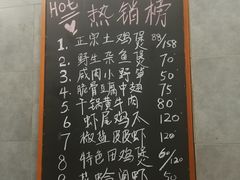 HOT 热销榜
1. 正宗土鸡煲 88/158
2. 野生杂鱼煲 70
3. 咸肉小野笋 50
4. 脆骨豆腐中翅 75
5. 干锅黄牛肉 80
6. 虾尾鸡 120
7. 椒盐虾 120
8. 特色田鸡煲 60/120
50